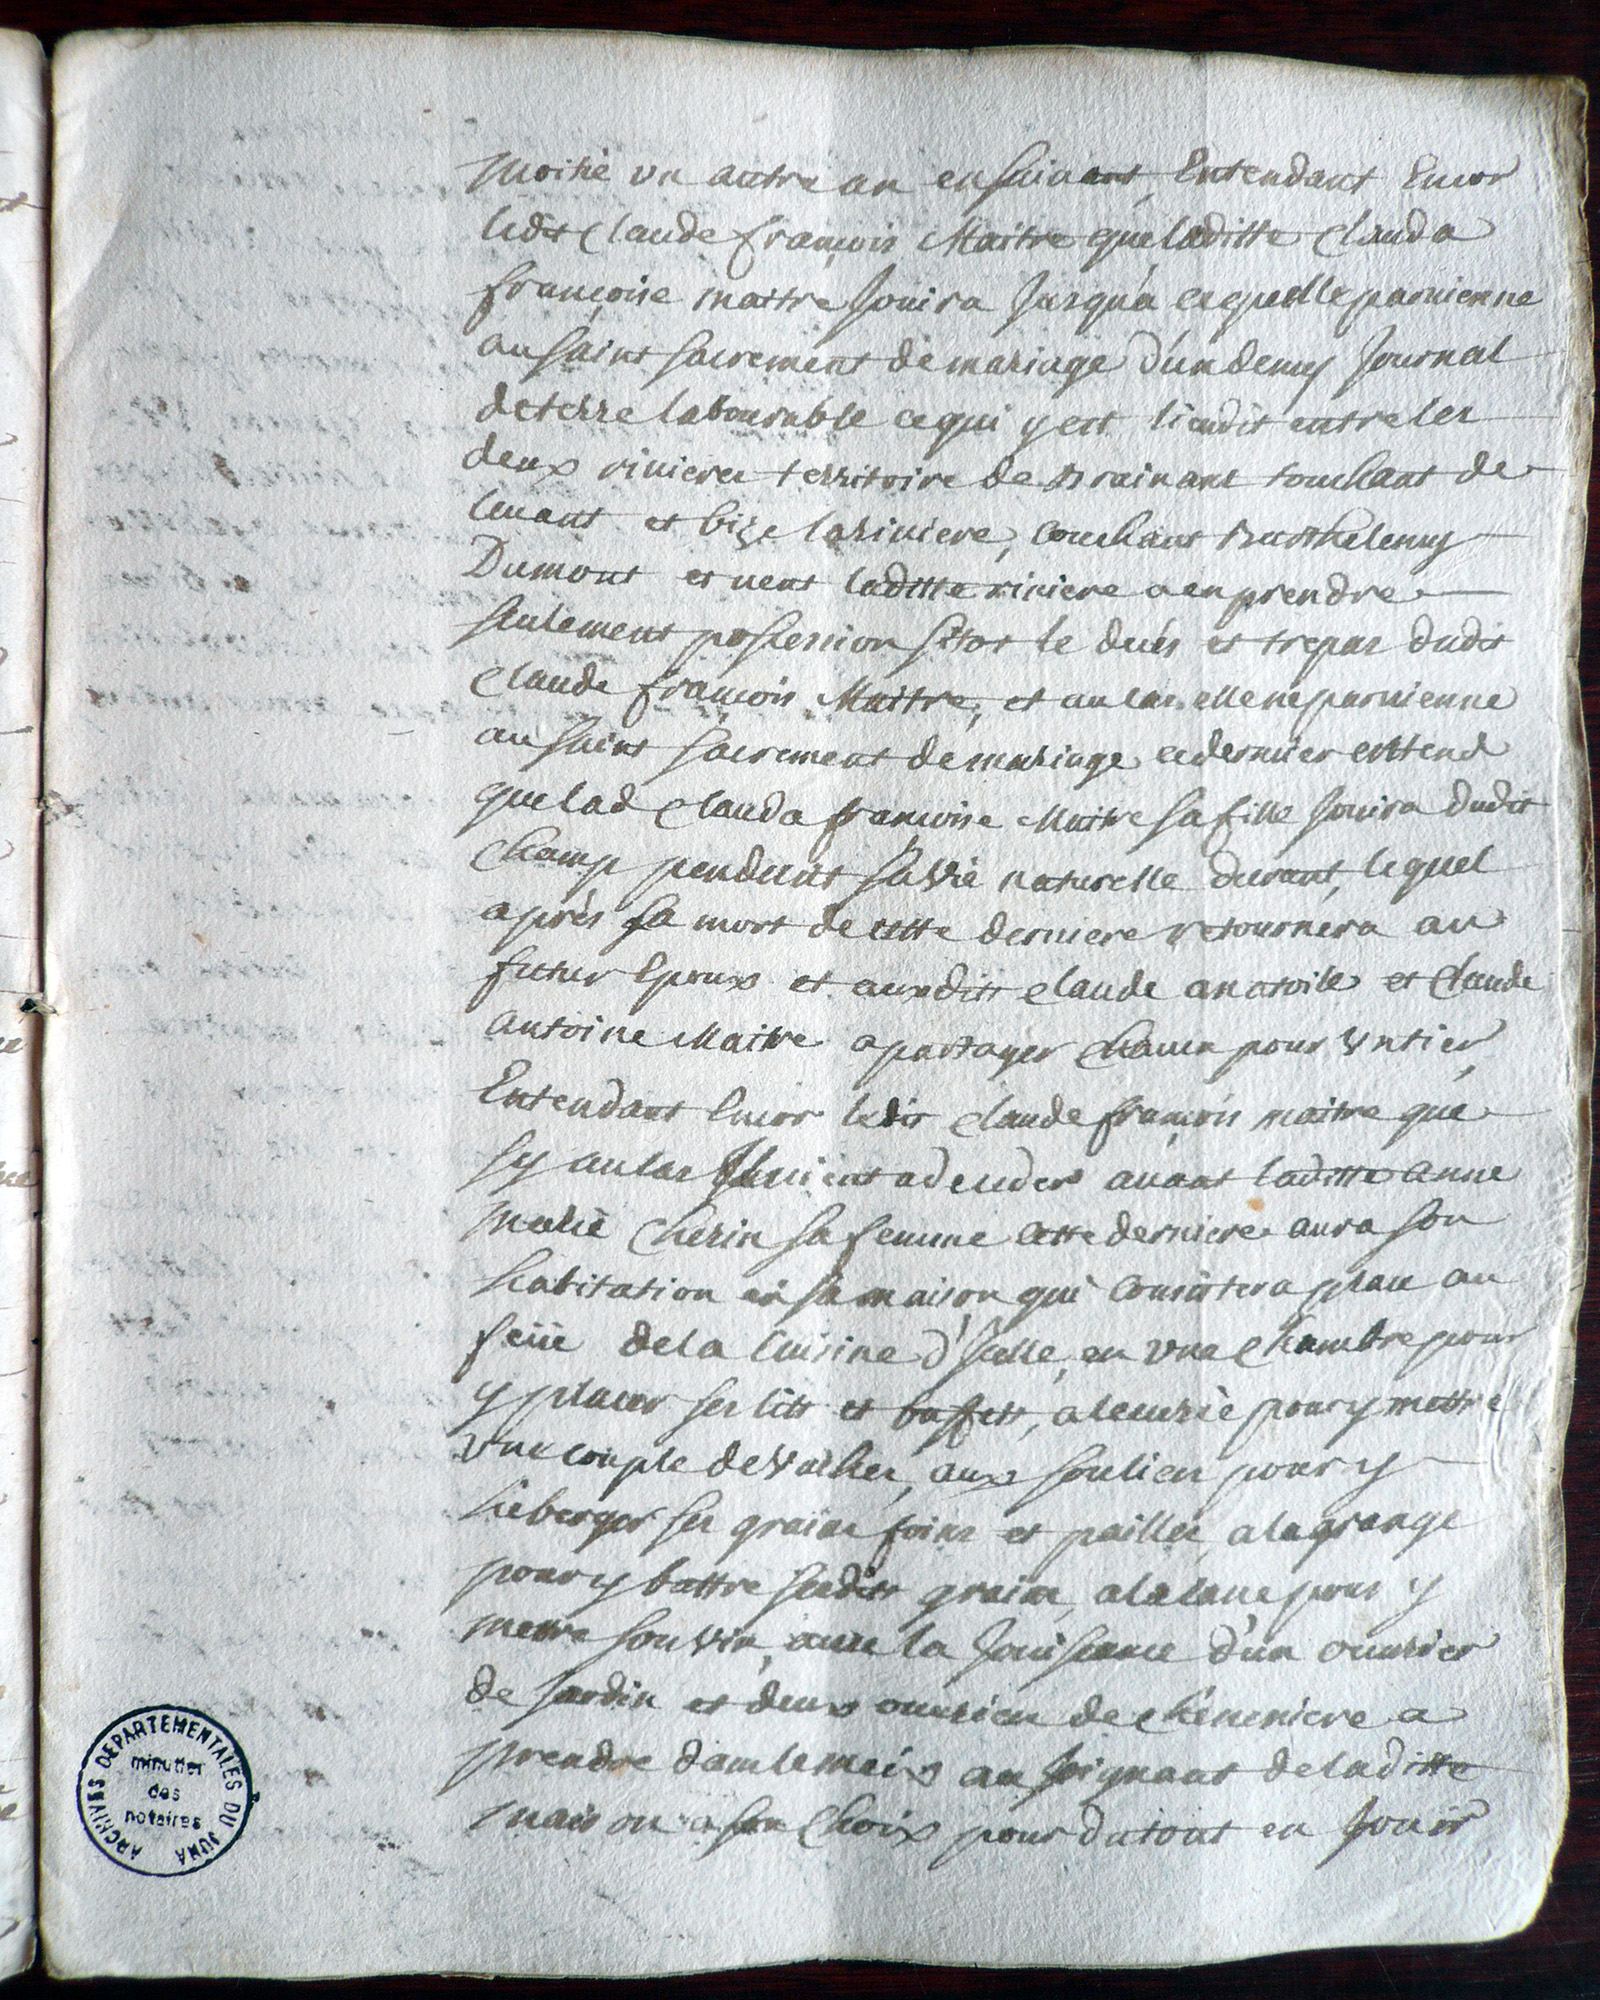 moitié vn autre an ensuivant, Entendant Encor
ledit Claude françois Maitre que laditte Clauda
françoise maitre Jouira Jusqu'a ce quelle parvienne
au saint sacrement de mariage d'un demy Journal
de terre labourable ce qui y est lieudit entre les
deux rivieres territoire de Brainans touchant de
levant et bize la riviere, couchant Barthelemy
Dumont et vent laditte riviere a en prendre
seulement possession sitot le décés et trepas dudit
Claude françois Maitre, et au cas elle ne parvienne
au saint sacrement de mariage ce dernier entend
que lad Clauda françoise Maitre sa fille Jouira dudit
Champ pendant sa vie naturelle durant, lequel
aprés sa mort de cette derniere retournera au
futur Epoux et auxdits Claude anatoile et Claude
antoine Maitre a partager chacun pour vn tier,
Entendant Encor ledit Claude françois maitre que
sy au cas Il vient a deceder avant laditte anne
marie Cherin sa femme cette derniere aura son
habitation en sa maison qui Consistera place au
feüe de la Cuisine d'Icelle, en vne Chambre pour
y placer ses lits et buffets, a lecurie pour y mettre
vne couple de vaches, aux souliers pour y
heberger ses grains foins et pailles, a la grange
pour y battre sesdits grains, a la cave pour y
mettre son vin, avec la Jouissance d'un ouvrier
de Jardin et deux ouvriers de Cheneviere a
prendre dans le meix au Joignant de laditte
maison a son Choix pour du tout en Jouir
ARCHIVES DEPARTEMENTALES DU JURA
minutier
des
notaires